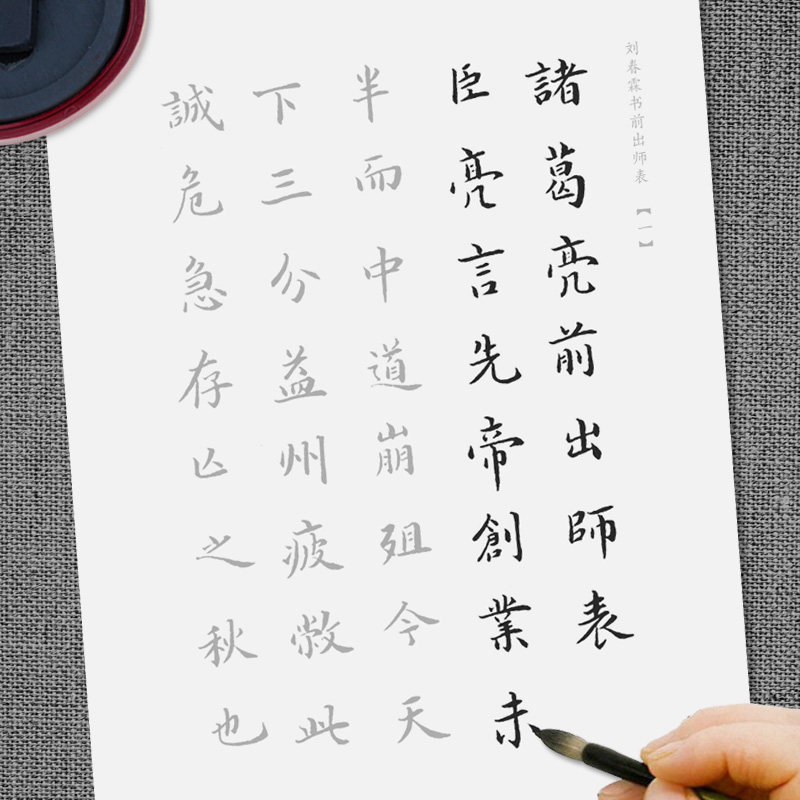 刘春霖书前出师表【一】
諸葛亮前出師表
臣亮言先帝創業未
半而中道崩殂今天
下三分益州疲敝此
誠危急存亾之秋也